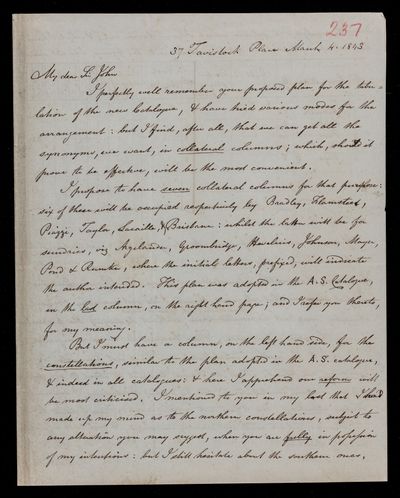 237
37 Tavistock Place March 4. 1843
My dear Sr. John
I perfectly well remember your proposed plan for the tabu-
lation of the new Catalogue, & have tried various modes for the
arrangement: but I find, after all, that we can get all the
synonyms, we want, in collateral columns; which, should it
prove to be effective, will be the most convenient.
I propose to have seven collateral columns for that purpose:
six of these will be occupied respectively by Bradley, Flamsteed,
Piazzi, Taylor, Lacaille, & Brisbane: whilst the latter will be for
sundries, viz Argelander, Groombridge, Hevelius, Johnson, Mayer,
Pond & Rumker, where the initial letters, prefixed, will indicate
the author intended. This plan was adopted in the A.S. Catalogue,
in the last column, on the right hand page; and I refer you thereto,
for my meaning.
But I must have a column, on the left hand side, for the
constellations, similar to the plan adopted in the A.S. catalogue,
& indeed in all catalogues: & here I apprehend our reform will
be most criticised. I mentioned to you in my last that I had
made up my mind as to the northern constellations, subject to
any alteration you may suggest, when you are fully in possession
of my intentions: but I still hesitate about the southern ones.